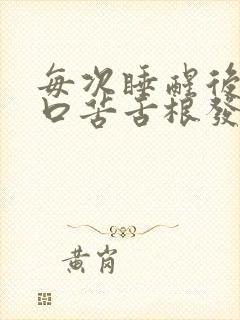 每次睡醒後
口苦舌根發
黄岗